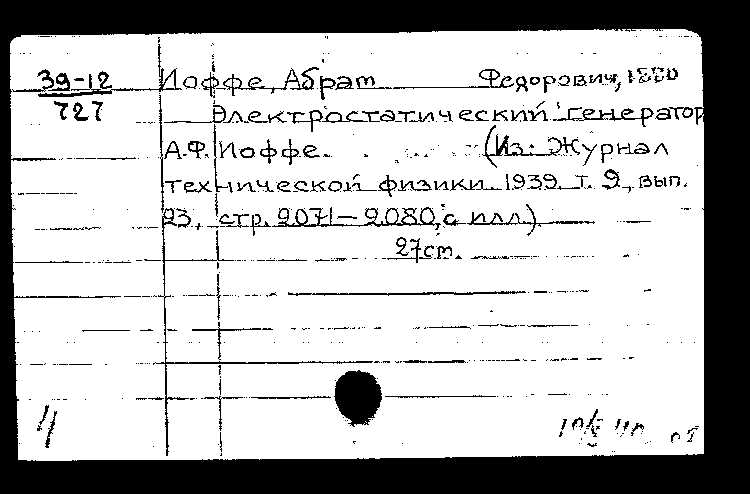 39-12 Иоффе, Абрам Федорович, 1880
727 Электростатический генератор
А.Ф. Иоффе. (Из: Журнал
технической физики. 1939. т. 9, вып.
23, стр. 2071-2080, с илл.)
27 cm.
4